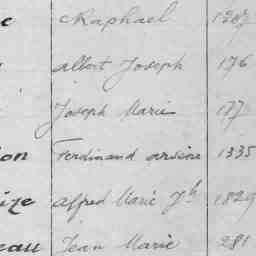 e Raphael 1207
Albert Joseph 176
Joseph Marie 177
on Ferdinand Arsène 1335
ize Alfred Marie Jh 1829
eau Jean Marie 281